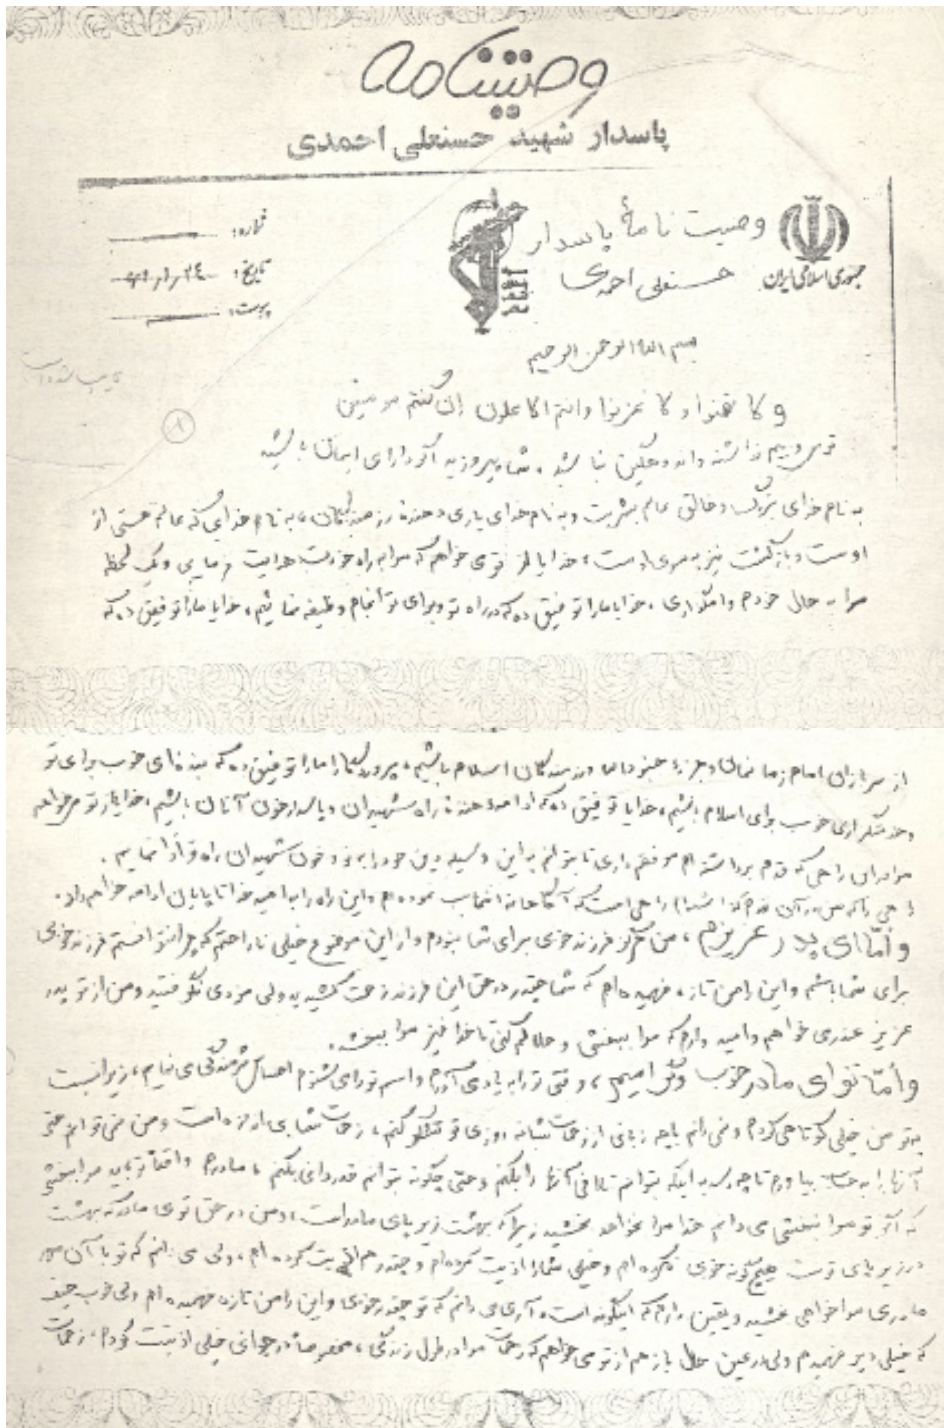 وصیتنامه
پاسدار شهید حسنعلی احمدی
وصیت نامهٔ پاسدار
حسنعلی احمدی
جمهوری اسلامی ایران
شماره:
تاریخ:
پیوست:
بسم الله الرحمن الرحیم
و لا تهنوا و لا تحزنوا وانتم الاعلون إن کنتم مومنین
ترس و بیم نداشته و اندوهگین نباشید، شما پیروزید اگر دارای ایمان باشید
به نام خدای بزرگ و خالق عالم بشریت و به نام خدای یاری دهنده رزمندگان، به نام خدایی که عالم هستی از
اوست و بازگشت نیز به سوی اوست، خدایا از تو می خواهم که مرا به راه خودت هدایت فرمایی و یک لحظه
مرا به حال خودم وامگذاری، خدایا ما را توفیق ده که در راه تو و برای تو انجام وظیفه نمائیم، خدایا ما را توفیق ده که
از سربازان امام زمانمان و جزء جنود الله و رزمندگان اسلام باشیم، پروردگارا ما را توفیق ده که بنده ای خوب برای تو
و خدمتگزاری خوب برای اسلام باشیم، خدایا توفیق ده که ادامه دهندهٔ راه شهیدان و پاسدار خون آنان باشیم، خدایا از تو می خواهم
مرا در این راهی که قدم برداشته ام موفق داری تا بتوانم به این وسیله دین خود را به و خون شهیدان راه تو ادا نمایم.
راهی را که من در آن قدم راهی است که آگاهانه انتخاب نموده ام و این راه را به امید خدا تا پایان ادامه خواهم داد.
و امّا ای پدر عزیزم، من فرزند خوبی برای شما نبودم و از این موضوع خیلی ناراحتم که چرا نتوانستم فرزند خوبی
برای شما باشم و این را من تازه فهمیده ام که شما چقدر در حق این فرزند زحمت کشیدید ولی مزدی نگرفتید و من از تو پدر
عزیز عذر می خواهم و امید دارم که مرا ببخشی و حلالم کنی تا خدا نیز مرا ببخشد.
و امّا تو ای مادر خوب و گرامیم، وقتی ترا به یاد می آورم و اسم تو را می شنوم احساس شرمندگی می نمایم، زیرا نسبت
به تو من خیلی کوتاهی کردم و نمی دانم با چه زبانی از زحمات شبانه روزی تو تشکر کنم، زحمات شما بی اندازه است و من نمی توانم حتی
آنها را به حساب بیاورم تا چه رسد به اینکه بتوانم تلافی آنها را بکنم و حتی چگونه بتوانم قدردانی بکنم، مادرم واقعاً تو باید مرا ببخشی
که اگر تو مرا نبخشی می دانم خدا مرا نخواهد بخشید زیرا که بهشت زیر پای مادران است، و من در حق تو ای مادر که بهشت
در زیر پای توست هیچگونه خوبی نکرده ام و خیلی شما را اذیت کرده ام و چقدر هم اذیت کرده ام، ولی می دانم که تو با آن مهر
مادری مرا خواهی بخشید و یقین دارم که اینگونه است، آری می دانم که تو چقدر خوبی و این را من تازه فهمیده ام ولی خوب حیف
که خیلی دیر فهمیدم ولی در عین حال باز هم از تو می خواهم که زحمات مرا در طول زندگی، مخصوصاً در جوانی خیلی اذیت کردم، زحمات